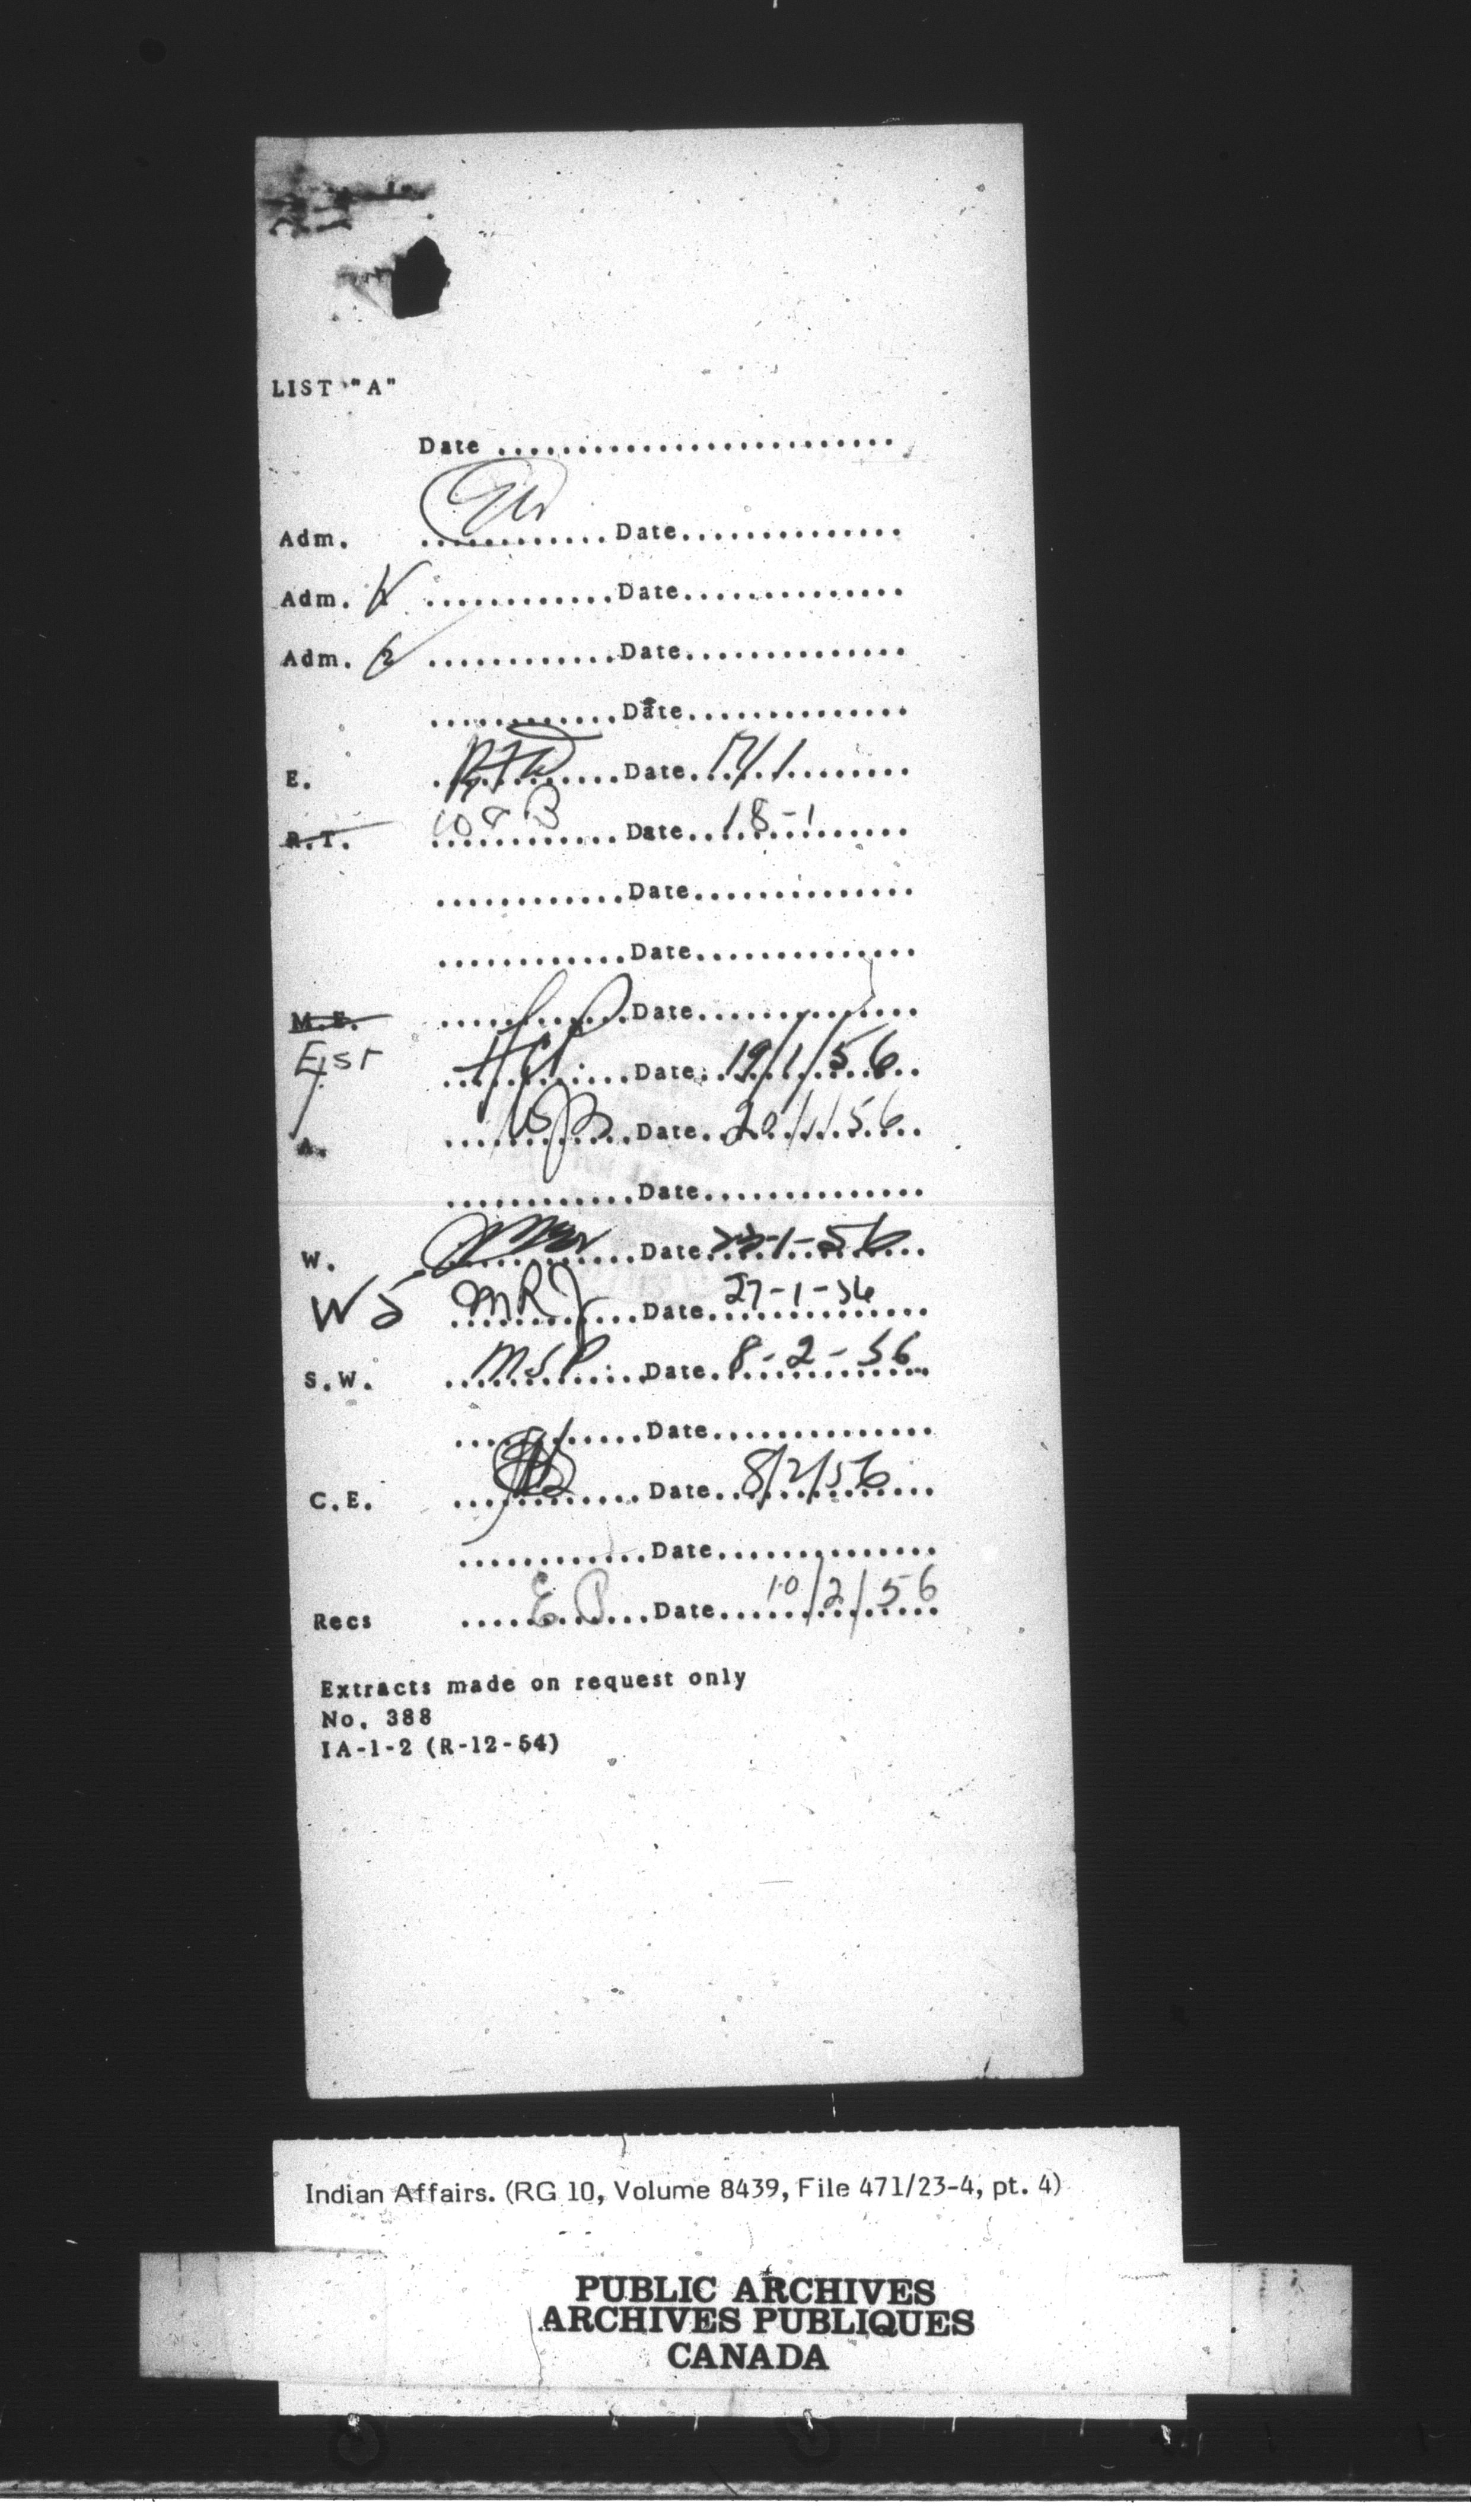 LIST "A"
Date ..........................
Adm. ............ Date..............
Adm. 1 ............Date..............
Adm. 2 ............Date..............
............Date..............
E. ............Date. 17/1
R.T. ............ Date 18-1
............Date..............
............Date..............
M.E. ............Date..............
............Date. 19/1/56
A. ............Date. 20/1/56
............Date..............
W. ............Date 23-1-56
W5 MRJ Date 27-1-56
S.W. MSP Date 8-2-56
............Date..............
C.E. ............ Date 8/2/56
............Date..............
Recs E P Date 10/2/56
Extracts made on request only
No. 388
IA-1-2 (R-12-54)
Indian Affairs. (RG 10, Volume 8439, File 471/23-4, pt. 4)
PUBLIC ARCHIVES
ARCHIVES PUBLIQUES
CANADA